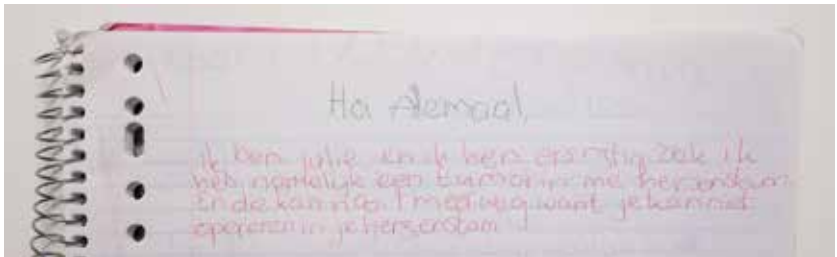 Hoi Alemaal,
ik ben julie en ik ben ernstig ziek ik
heb namelijk een tumor in me hersenstam
en de kan nooit meer weg want je kan niet
opereren in je hersenstam